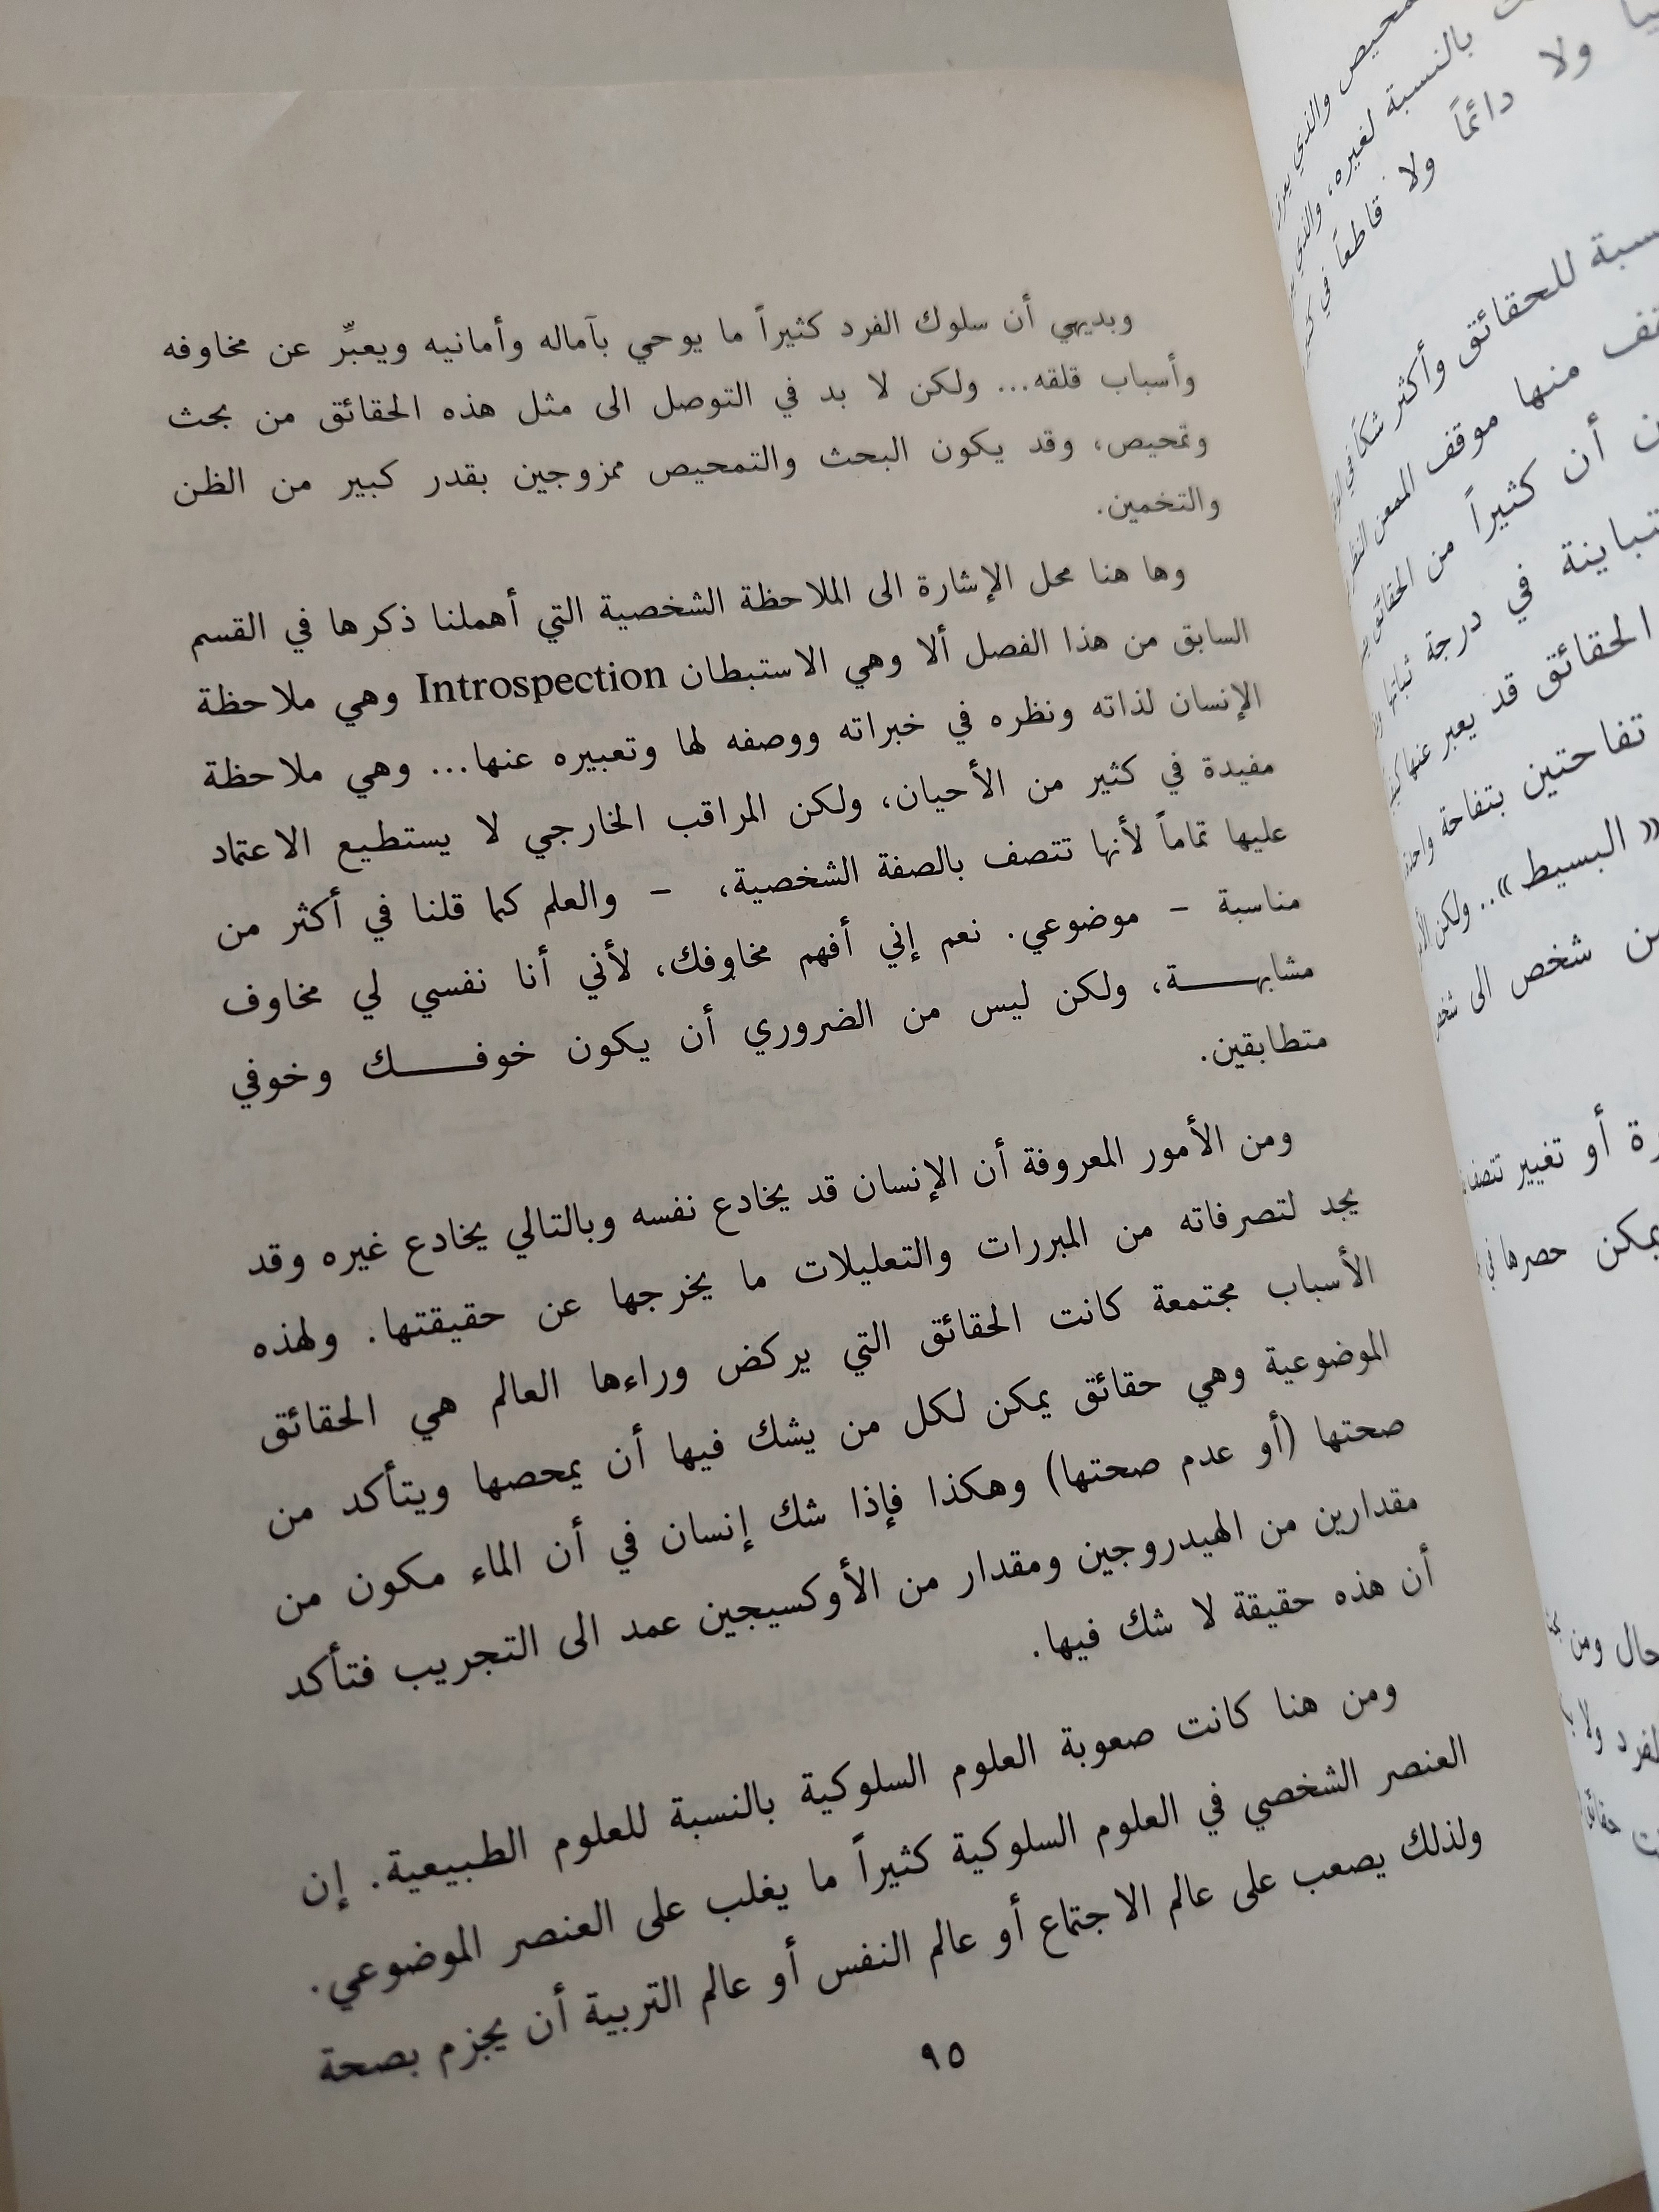 وبديهي أن سلوك الفرد كثيراً ما يوحي بآماله وأمانيه ويعبِّر عن مخاوفه
وأسباب قلقه... ولكن لا بد في التوصل الى مثل هذه الحقائق من بحث
وتمحيص، وقد يكون البحث والتمحيص ممزوجين بقدر كبير من الظن
والتخمين.
وها هنا محل الإشارة الى الملاحظة الشخصية التي أهملنا ذكرها في القسم
السابق من هذا الفصل ألا وهي الاستبطان Introspection وهي ملاحظة
الإنسان لذاته ونظره في خبراته ووصفه لها وتعبيره عنها... وهي ملاحظة
مفيدة في كثير من الأحيان، ولكن المراقب الخارجي لا يستطيع الاعتماد
عليها تماماً لأنها تتصف بالصفة الشخصية، – والعلم كما قلنا في أكثر من
مناسبة – موضوعي. نعم إني أفهم مخاوفك، لأني أنا نفسي لي مخاوف
مشابهـــة، ولكن ليس من الضروري أن يكون خوفـــك وخوفي
متطابقين.
ومن الأمور المعروفة أن الإنسان قد يخادع نفسه وبالتالي يخادع غيره وقد
يجد لتصرفاته من المبررات والتعليلات ما يخرجها عن حقيقتها. ولهذه
الأسباب مجتمعة كانت الحقائق التي يركض وراءها العالم هي الحقائق
الموضوعية وهي حقائق يمكن لكل من يشك فيها أن يمحصها ويتأكد من
صحتها (أو عدم صحتها) وهكذا فإذا شك إنسان في أن الماء مكون من
مقدارين من الهيدروجين ومقدار من الأوكسيجين عمد الى التجريب فتأكد
أن هذه حقيقة لا شك فيها.
ومن هنا كانت صعوبة العلوم السلوكية بالنسبة للعلوم الطبيعية. إن
العنصر الشخصي في العلوم السلوكية كثيراً ما يغلب على العنصر الموضوعي.
ولذلك يصعب على عالم الاجتماع أو عالم النفس أو عالم التربية أن يجزم بصحة
٩٥
والذي
بالنسبة لغيره، والذي
ولا دائماً ولا قاطعاً في
للحقائق وأكثر شكاً في
منها موقف الممعن النظر
أن كثيراً من الحقائق
في درجة ثباتها
الحقائق قد يعبر عنها
تفاحتين بتفاحة واحدة
« البسيط ».. ولكن
شخص الى
أو تغيير
يمكن حصرها في
ومن
ولا